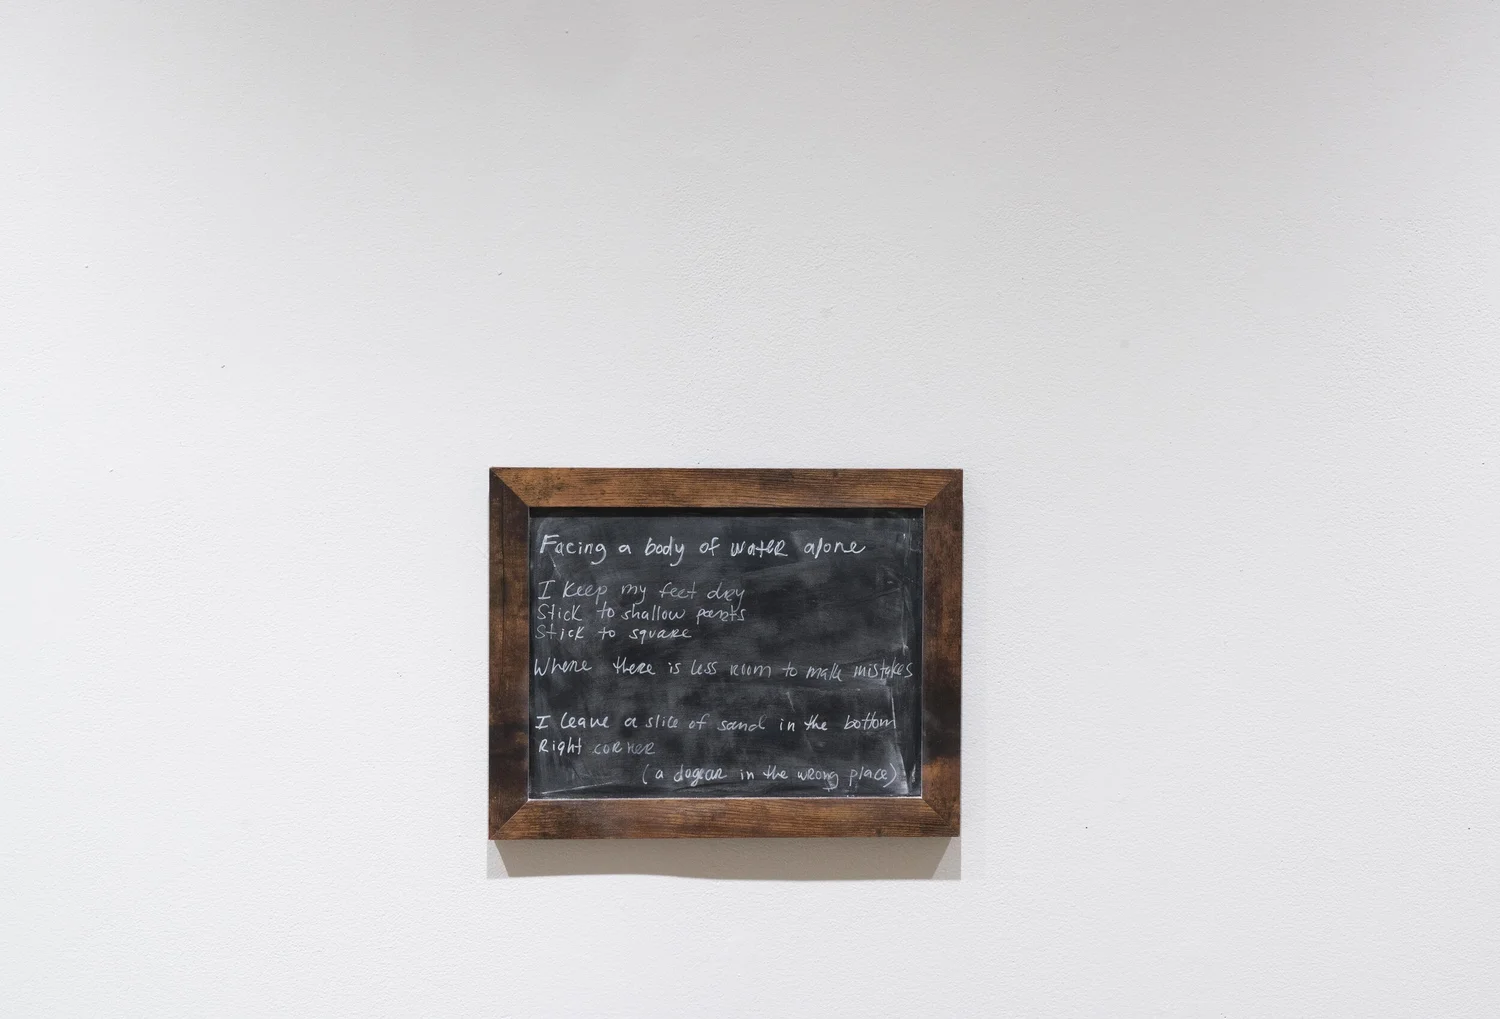 Facing a body of water alone
I keep my feet dry
Stick to shallow parts
Stick to square
Where there is less room to make mistakes
I leave a slice of sand in the bottom
Right corner
(a dogear in the wrong place)